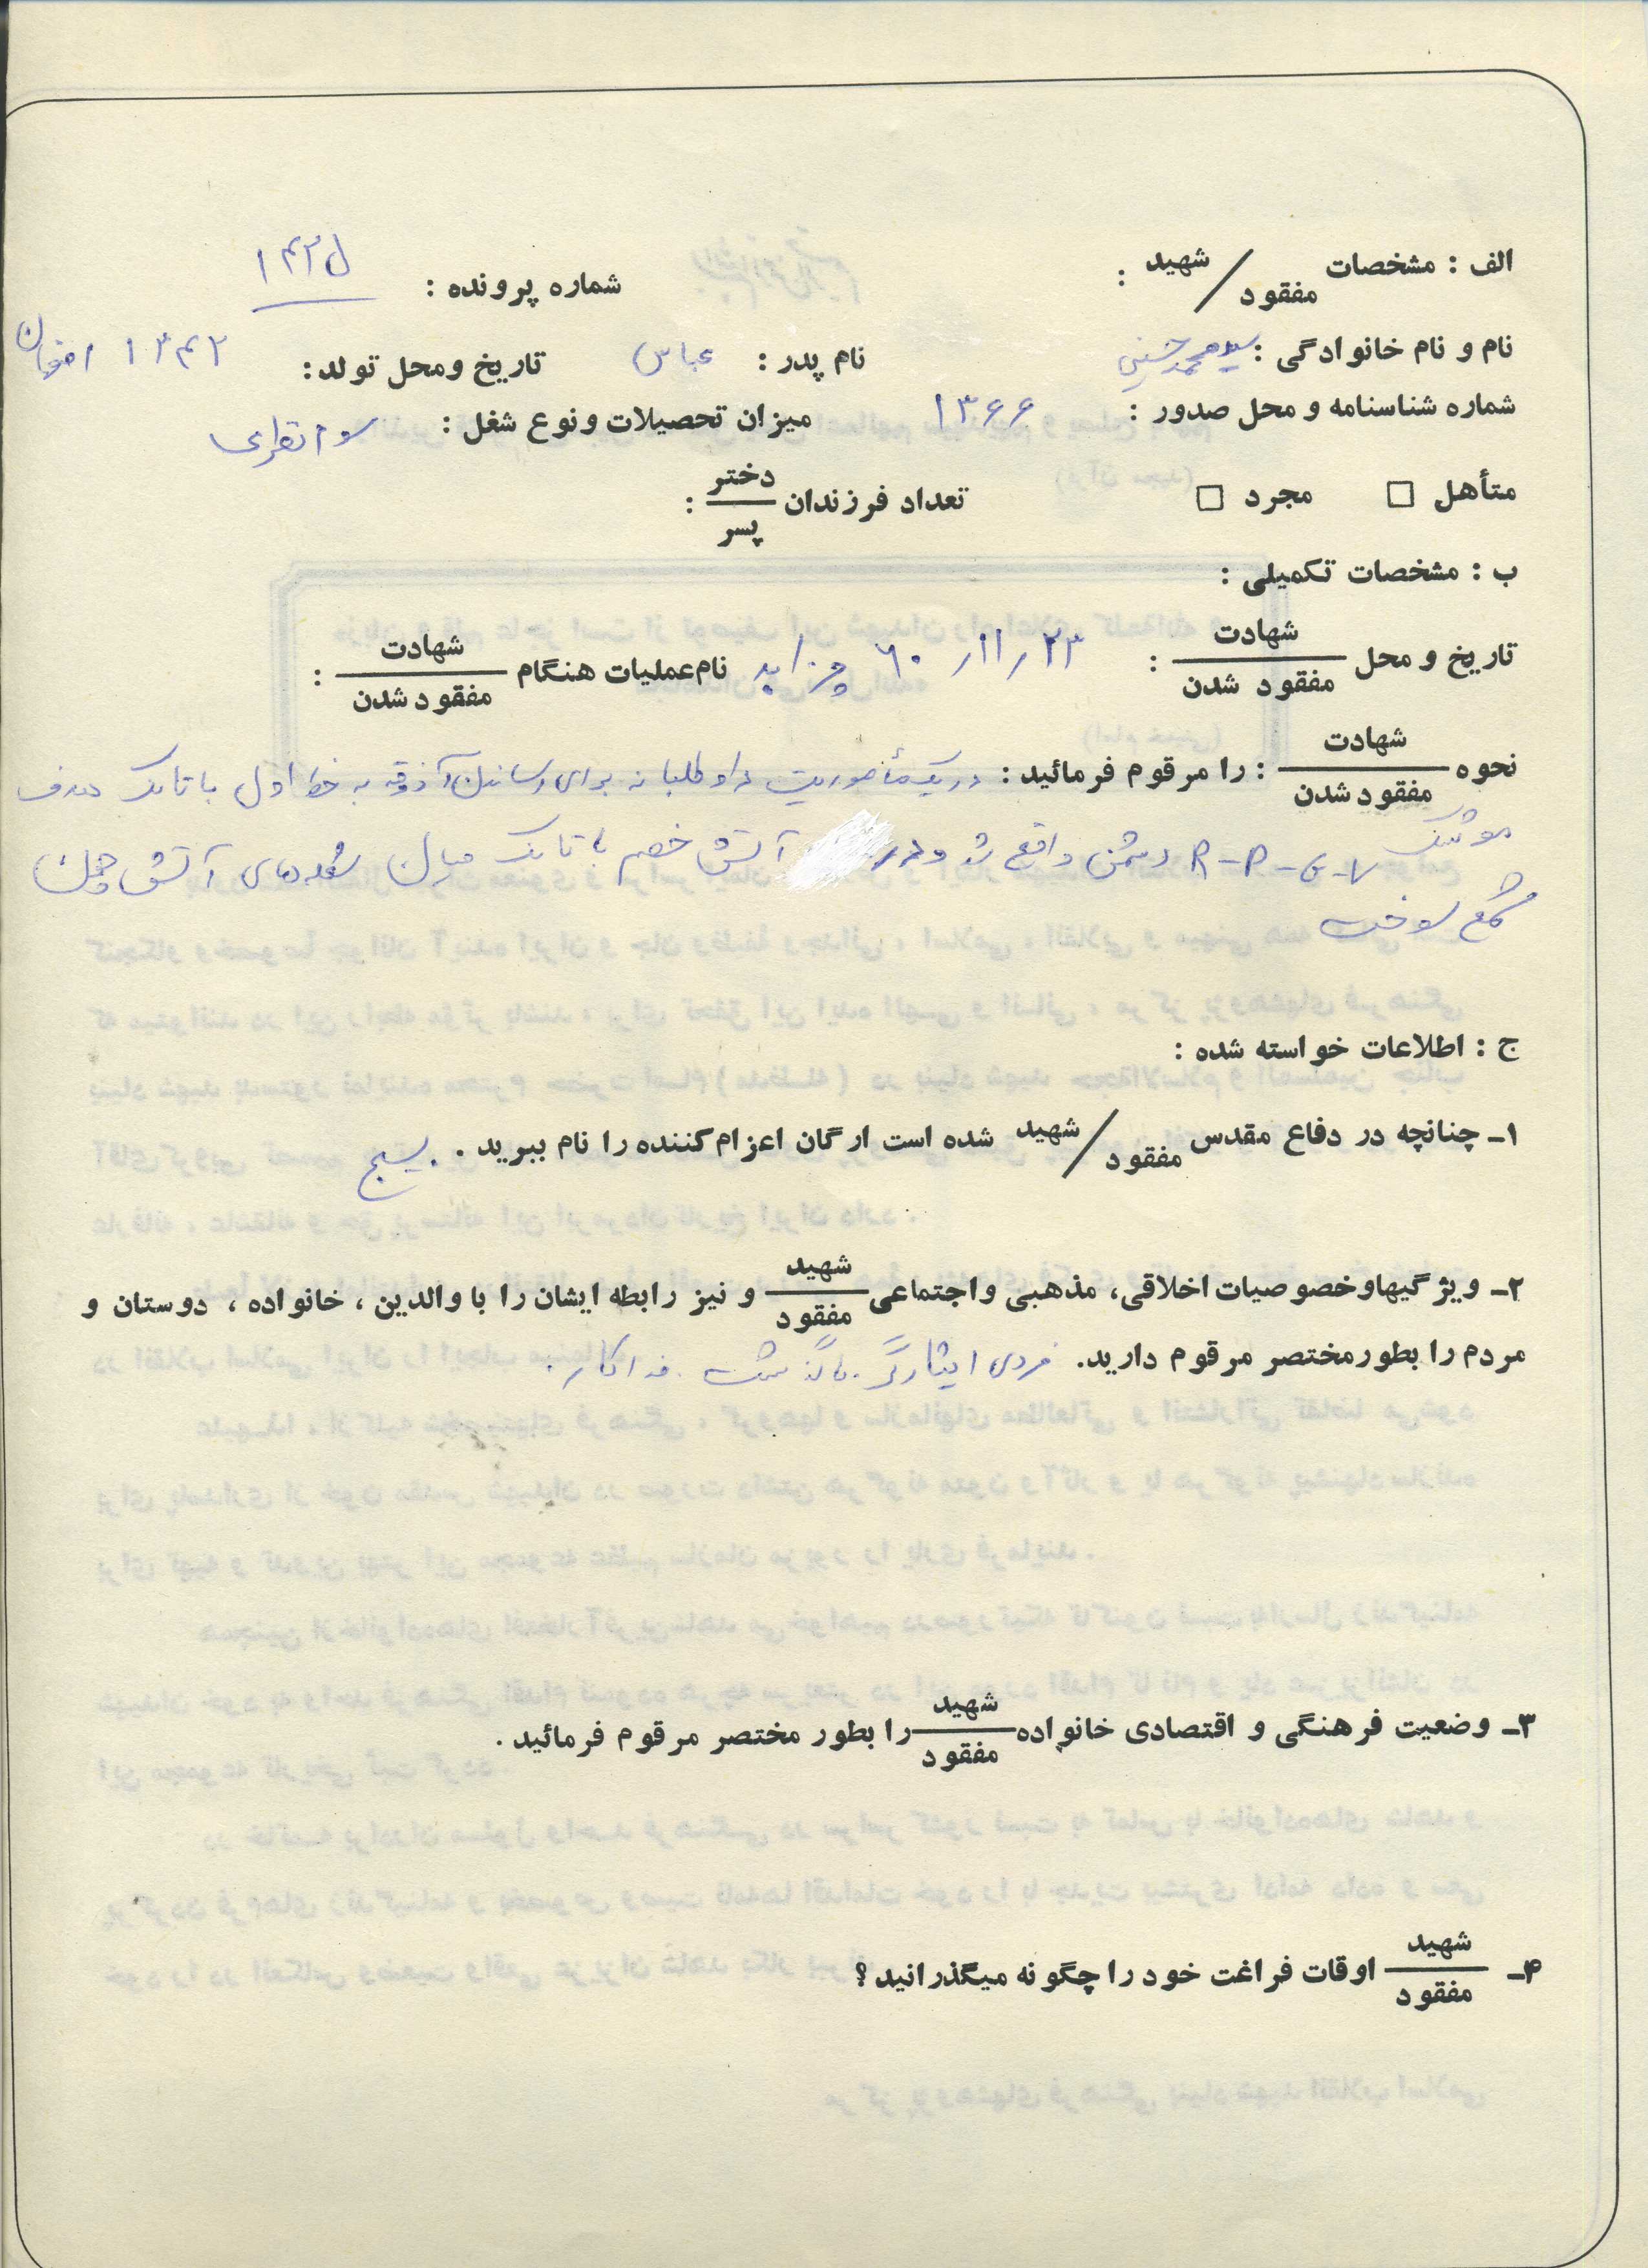 الف : مشخصات شهید / مفقود :
شماره پرونده : ل ۱۴۲
نام و نام خانوادگی : سید محمد حسینی نام پدر : عباس تاریخ ومحل تولد : ۱۳۴۲
شماره شناسنامه و محل صدور : ۱۳۶۶ میزان تحصیلات و نوع شغل :
متأهل □ مجرد □ تعداد فرزندان دختر / پسر :
ب : مشخصات تکمیلی :
تاریخ و محل شهادت / مفقود شدن : ۲۳ / ۱۱ / ۶۰ چزابه نام عملیات هنگام شهادت / مفقود شدن :
نحوه شهادت / مفقود شدن : را مرقوم فرمائید : در یک مأموریت داوطلبانه برای رساندن آذوقه به خط اول با تانک هدف
موشک R-P-G-۷ دشمن واقع شد و در آتش خصم با تانک میان شعله‌های آتش و چون
شمع سوخت
ج : اطلاعات خواسته شده :
۱ـ چنانچه در دفاع مقدس شهید / مفقود شده است ارگان اعزام کننده را نام ببرید . بسیج
۲ـ ویژگیها و خصوصیات اخلاقی، مذهبی و اجتماعی شهید / مفقود و نیز رابطه ایشان را با والدین ، خانواده ، دوستان و
مردم را بطور مختصر مرقوم دارید. فردی ایثارگر . با گذشت . فداکار .
۳ـ وضعیت فرهنگی و اقتصادی خانواده شهید / مفقود را بطور مختصر مرقوم فرمائید .
۴ـ شهید / مفقود اوقات فراغت خود را چگونه میگذرانید ؟